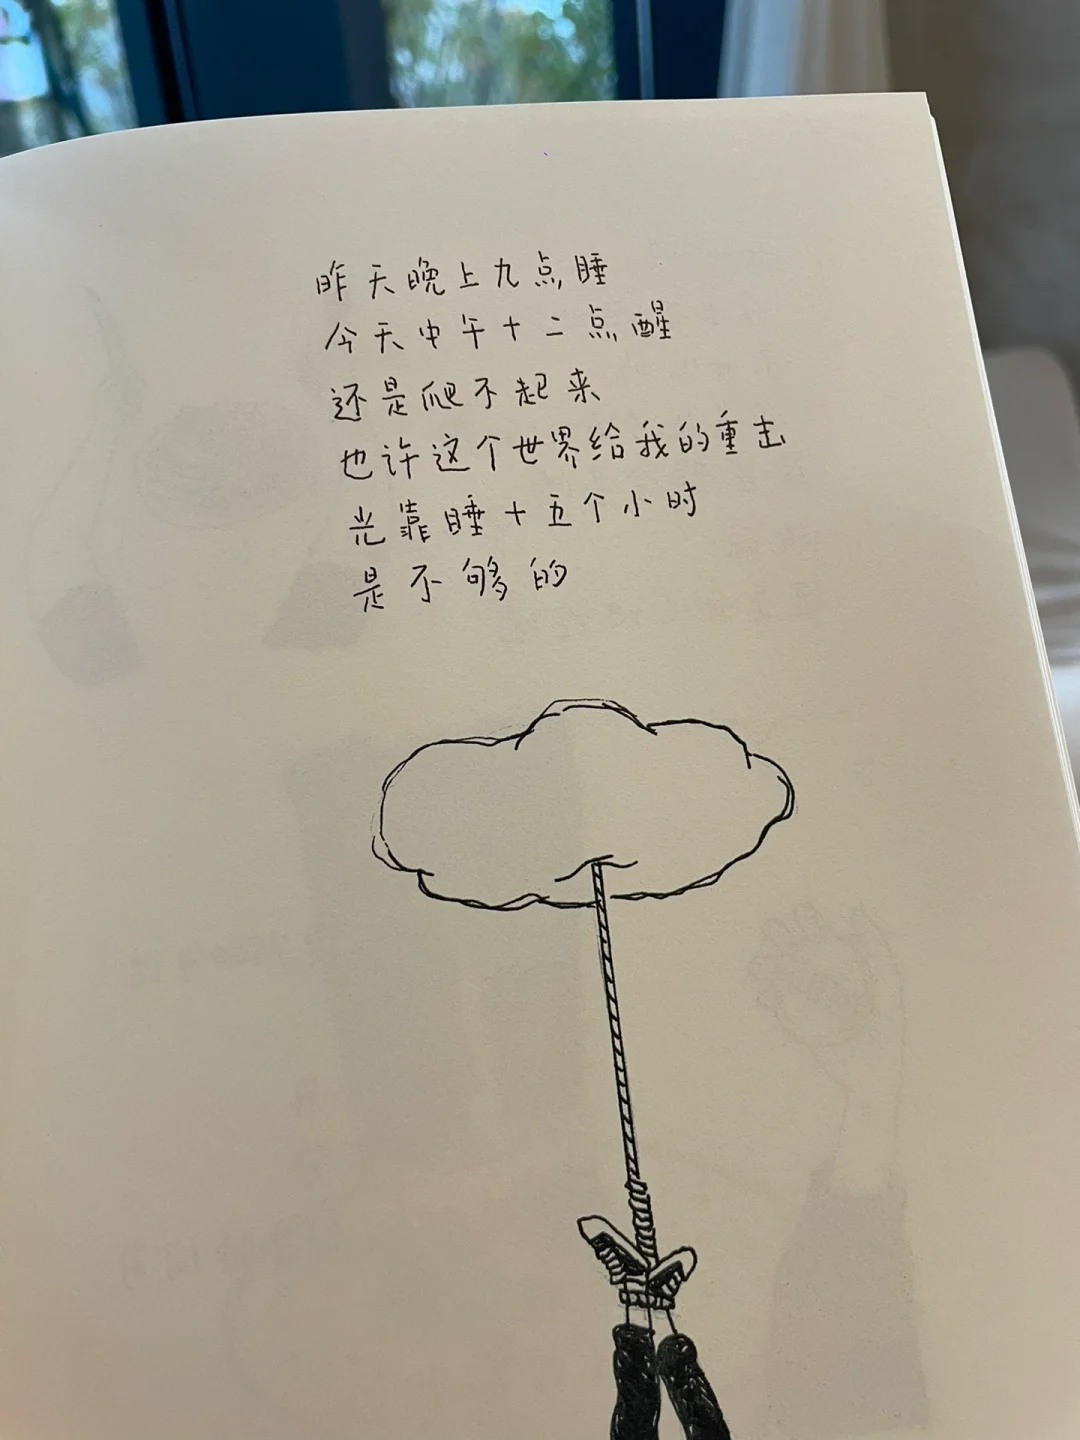 昨天晚上九点睡
今天中午十二点醒
还是爬不起来
也许这个世界给我的重击
光靠睡十五个小时
是不够的